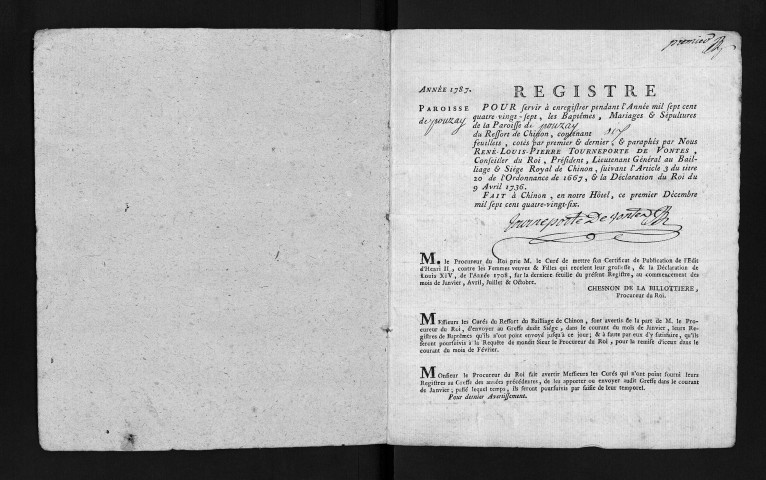 premier
ANNÉE 1787.
REGISTRE
PAROISSE
de pouzay
POUR servir à enregistrer pendant l'Année mil sept cent
quatre-vingt-sept, les Baptêmes, Mariages & Sépultures
de la Paroisse de pouzay
du Ressort de Chinon, contenant
feuillets, cotés par premier & dernier, & paraphés par Nous
RENÉ-LOUIS-PIERRE TOURNEPORTE DE VONTES,
Conseiller du Roi, Président, Lieutenant Général au Bail-
liage & Siège Royal de Chinon, suivant l'Article 3 du titre
20 de l'Ordonnance de 1667, & la Déclaration du Roi du
9 Avril 1736.
FAIT à Chinon, en notre Hôtel, ce premier Décembre
mil sept cent quatre-vingt-six.
Tourneporte De Vontes
M. le Procureur du Roi prie M. le Curé de mettre son Certificat de Publication de l'Edit
d'Henri II, contre les Femmes veuves & Filles qui recelent leur grossesse, & la Déclaration de
Louis XIV, de l'Année 1708, sur la derniere feuille du présent Registre, au commencement des
mois de Janvier, Avril, Juillet & Octobre.
CHESNON DE LA BILLOTTIERE,
Procureur du Roi.
MESSIEURS les Curés du Ressort du Bailliage de Chinon, sont avertis de la part de M. le Pro-
cureur du Roi, d'envoyer au Greffe dudit Siège, dans le courant du mois de Janvier, leurs Re-
gistres de Baptêmes qu'ils n'ont point envoyé jusqu'à ce jour; & à faute par eux d'y satisfaire, qu'ils
seront poursuivis à la Requête de mondit Sieur le Procureur du Roi, pour la remise d'iceux dans le
courant du mois de Février.
MONSIEUR le Procureur du Roi fait avertir Messieurs les Curés qui n'ont point fourni leurs
Registres au Greffe des années précédentes, de les apporter ou envoyer audit Greffe dans le courant
de Janvier; passé lequel temps, ils seront poursuivis par saisie de leur temporel.
Pour dernier Avertissement.